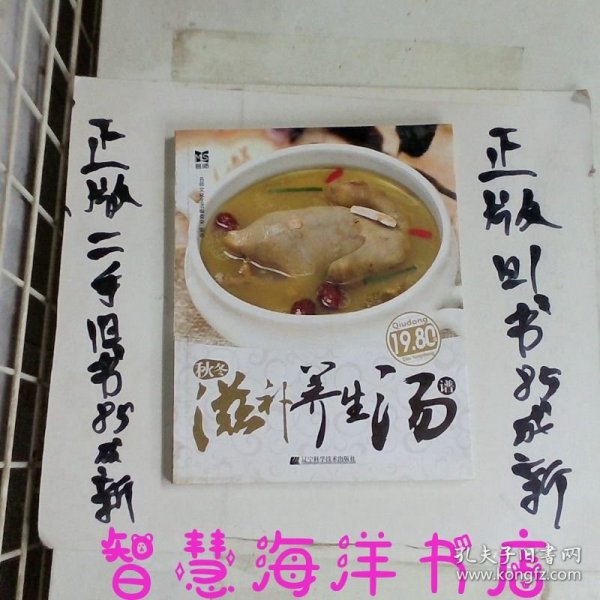 正版二手旧书85成新
Qiudong
19.80
秋冬
滋补养生汤
谱
辽宁科学技术出版社
正版旧书85成新
智慧海洋书店
孔夫子旧书网
www.kongfz.com